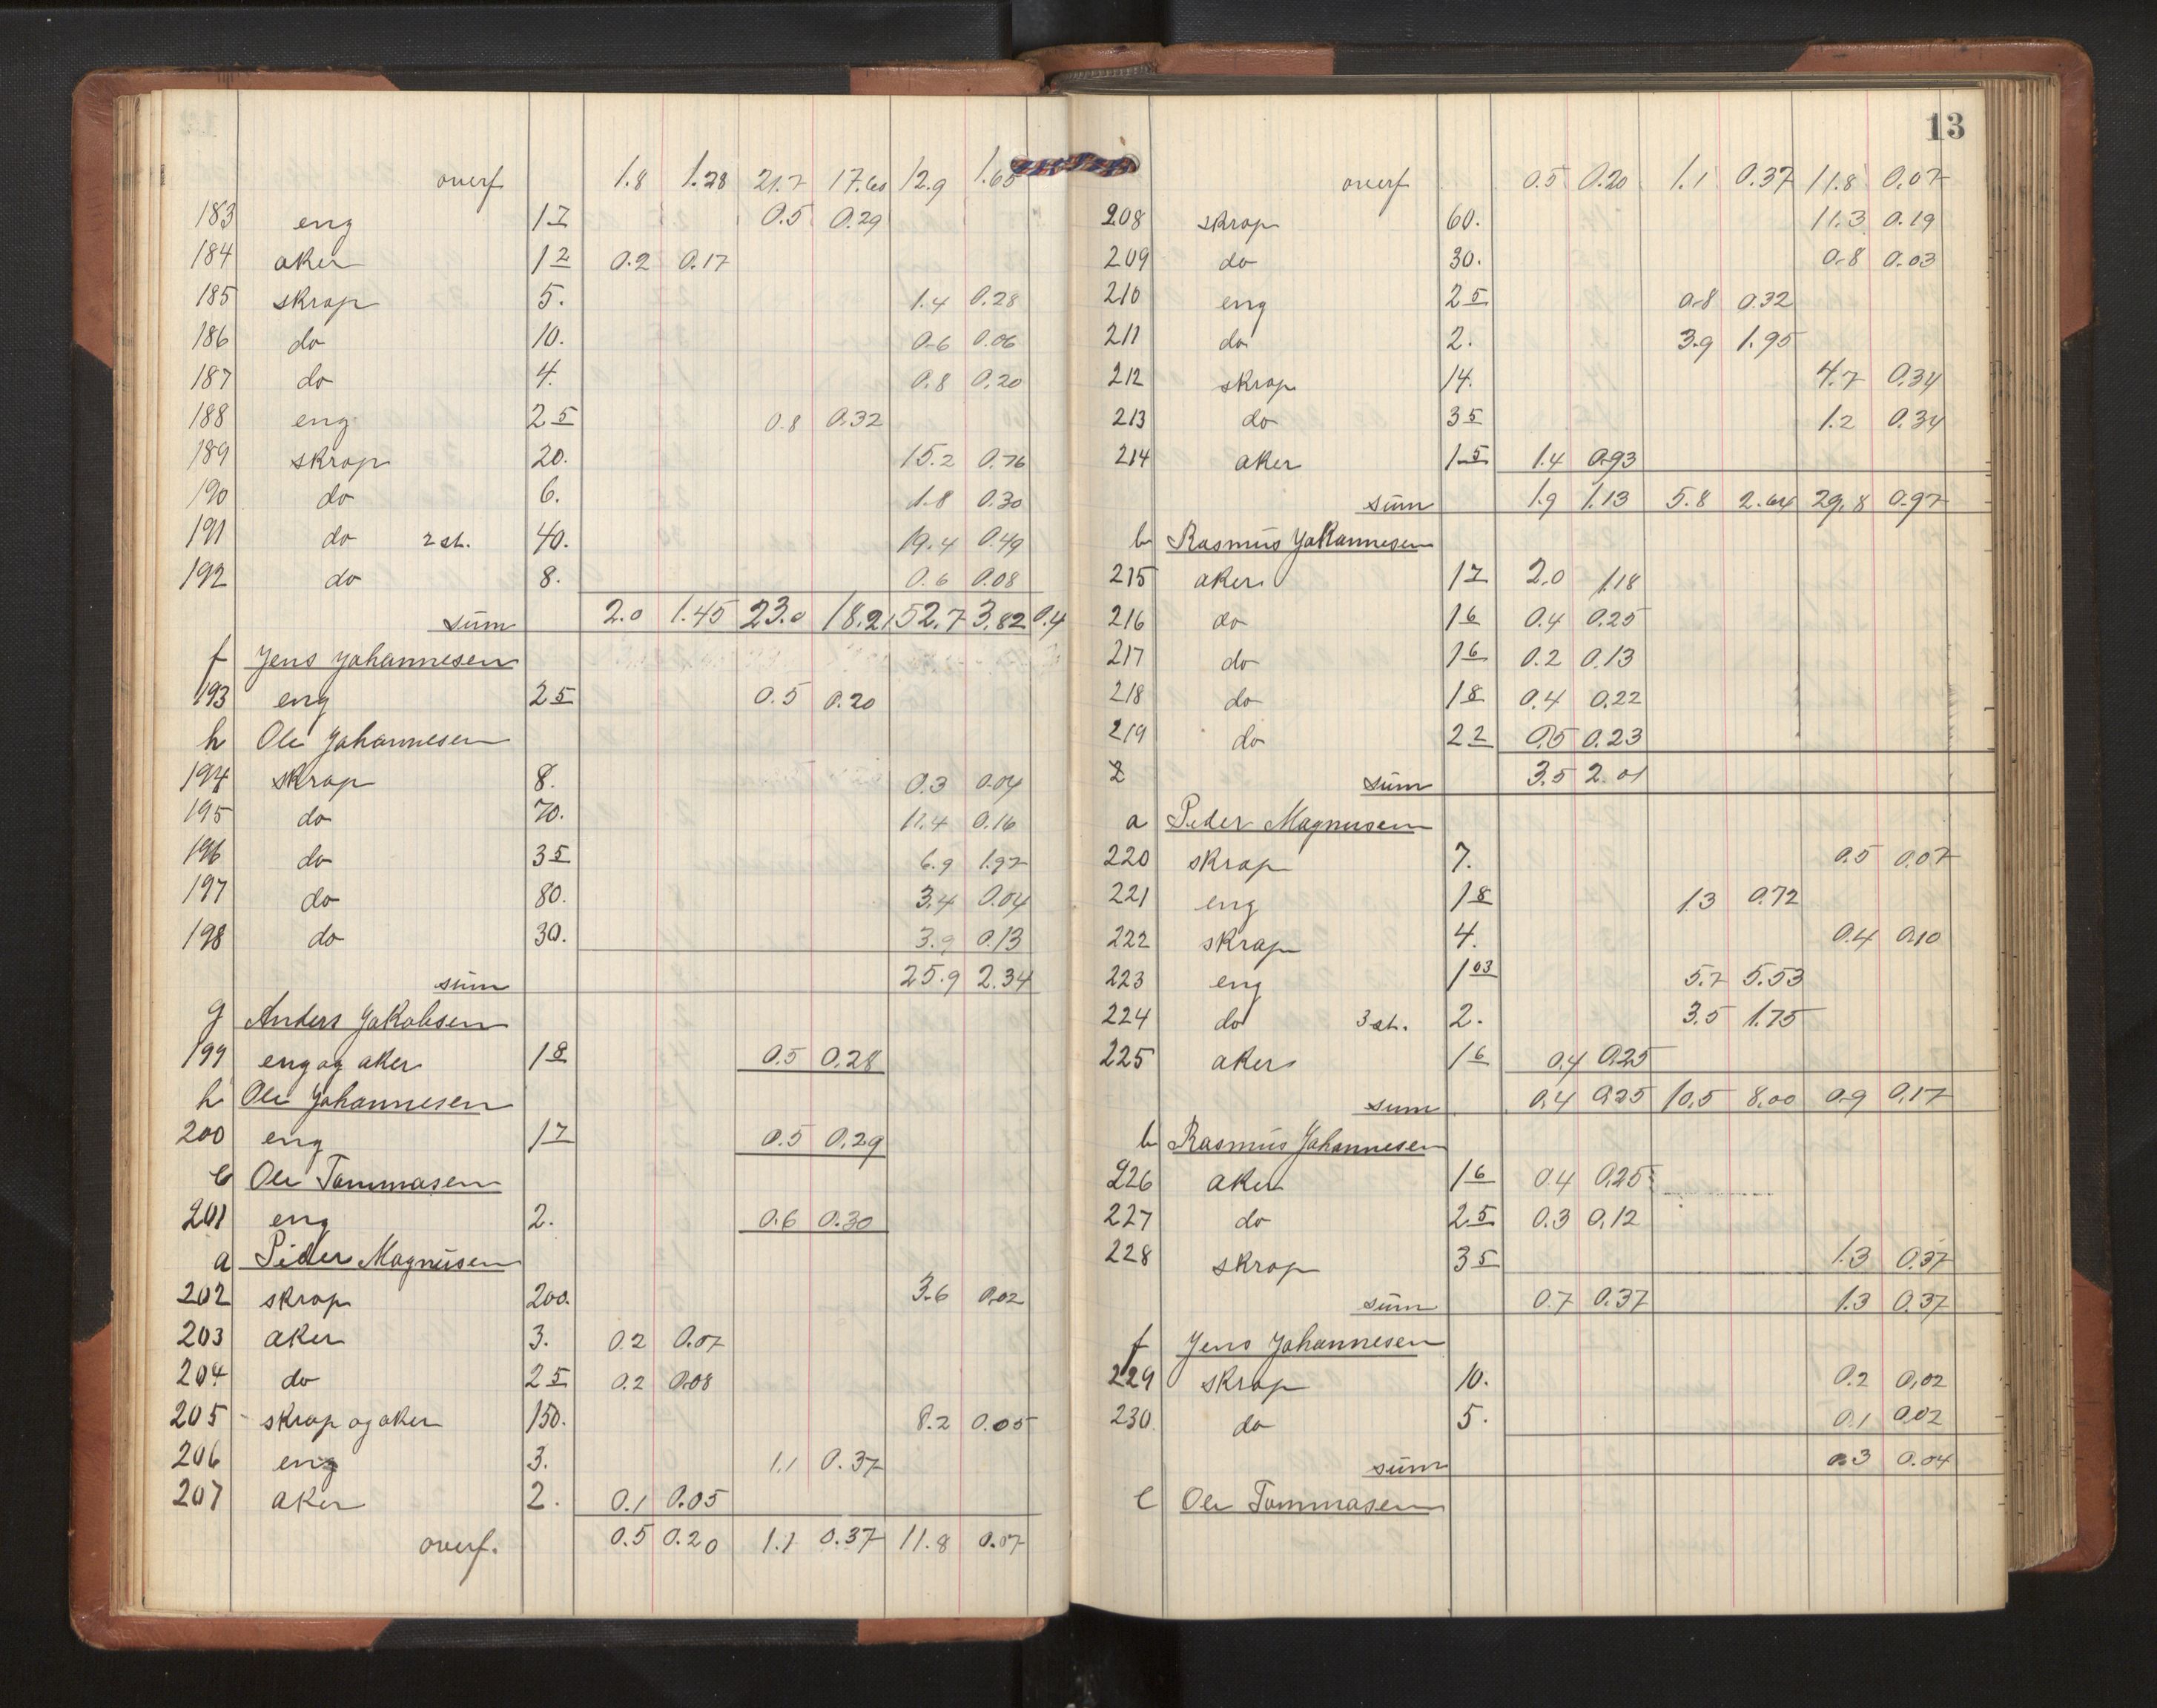 overf 1.8 1.28 21.7 17.60 12.9 1.65
183 eng 17 0.5 0.29
184 aker 12 0.2 0.17
185 skrap 5. 1.4 0.28
186 do 10. 0.6 0.06
187 do 4. 0.8 0.20
188 eng 25 0.8 0.32
189 skrap 20. 15.2 0.76
190 do 6. 1.8 0.30
191 do 2 st. 40. 19.4 0.49
192 do 8. 0.6 0.08
sum 2.0 1.45 23.0 18.21 52.7 3.82 0.4
f Jens Johannesen
193 eng 25 0.5 0.20
h Ole Johannesen
194 skrap 8. 0.3 0.04
195 do 70. 11.4 0.16
196 do 35 6.9 1.97
197 do 80. 3.4 0.04
198 do 30. 3.9 0.13
sum 25.9 2.34
g Anders Jakobsen
199 eng og aker 18 0.5 0.28
h Ole Johannesen
200 eng 17 0.5 0.29
e Ole Tommasen
201 eng 2. 0.6 0.30
a Peder Magnusen
202 skrap 200. 3.6 0.02
203 aker 3. 0.2 0.07
204 do 25 0.2 0.08
205 skrap og aker 150. 8.2 0.05
206 eng 3. 1.1 0.37
207 aker 2. 0.1 0.05
overf. 0.5 0.20 1.1 0.37 11.8 0.07
13
overf 0.5 0.20 1.1 0.37 11.8 0.07
208 skrap 60. 11.3 0.19
209 do 30. 0.8 0.03
210 eng 25 0.8 0.32
211 do 2. 3.9 1.95
212 skrap 14. 4.7 0.34
213 do 35 1.2 0.34
214 aker 15 1.4 0.93
sum 1.9 1.13 5.8 2.64 29.8 0.97
b Rasmus Johannesen
215 aker 17 2.0 1.18
216 do 16 0.4 0.25
217 do 16 0.2 0.13
218 do 18 0.4 0.22
219 do 22 0.5 0.23
sum 3.5 2.01
a Peder Magnusen
220 skrap 7. 0.5 0.07
221 eng 18 1.3 0.72
222 skrap 4. 0.4 0.10
223 eng 103 5.7 5.53
224 do 3 st. 2. 3.5 1.75
225 aker 16 0.4 0.25
sum 0.4 0.25 10.5 8.00 0.9 0.17
b Rasmus Johannesen
226 aker 16 0.4 0.25
227 do 25 0.3 0.12
228 skrap 35 1.3 0.37
sum 0.7 0.37 1.3 0.37
f Jens Johannesen
229 skrap 10. 0.2 0.02
230 do 5. 0.1 0.02
sum 0.3 0.04
e Ole Tommasen